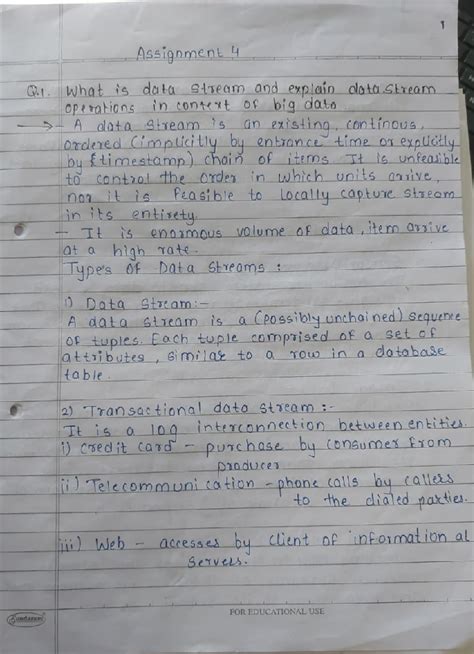 1
Assignment 4
Q.1. What is data stream and explain data stream
operations in context of big data.
→ - A data stream is an existing, continous,
ordered (implicitly by entrance time or explicitly
by {timestamp) chain of items. It is unfeasible
to control the order in which units arrive,
nor it is feasible to locally capture stream
in its entirety.
- It is enormous volume of data, item arrive
at a high rate.
Type's of Data Streams :
1) Data Stream:-
A data stream is a (possibly unchained) sequence
of tuples. Each tuple comprised of a set of
attributes, similar to a row in a database
table.
2) Transactional data stream :-
It is a log interconnection between entities.
i) Credit card - purchase by consumer from
producer
ii) Telecommunication - phone calls by callers
to the dialed parties.
iii) Web - accesses by client of information at
servers.
Sundaram
FOR EDUCATIONAL USE